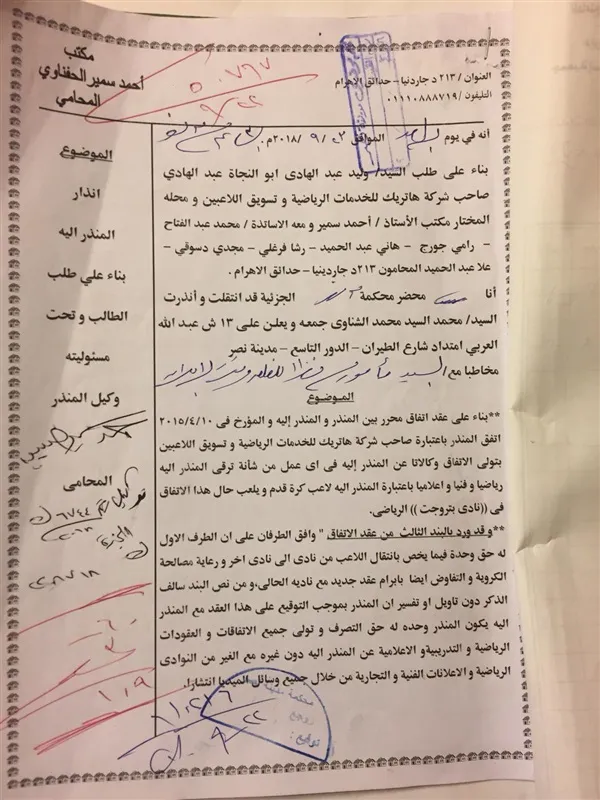 مكتب
أحمد سمير الحفناوي
المحامي
العنوان / ٢١٣ د جاردنيا – حدائق الاهرام
التليفون / ٠١١١٠٨٨٨٧١٩
٥٠٧٦٧
٩/٢٢
أنه في يوم الموافق ٢٣ / ٩ / ٢٠١٨م
بناء على طلب السيد/ وليد عبد الهادى ابو النجاة عبد الهادي
صاحب شركة هاتريك للخدمات الرياضية و تسويق اللاعبين و محله
المختار مكتب الأستاذ / أحمد سمير و معه الاساتذة / محمد عبد الفتاح
– رامي جورج – هاني عبد الحميد – رشا فرغلي – مجدي دسوقي –
علا عبد الحميد المحامون ٢١٣د جاردينيا – حدائق الاهرام .
أنا محضر محكمة الجزئية قد انتقلت و أنذرت
السيد/ محمد السيد محمد الشناوى جمعه و يعلن على ١٣ ش عبد الله
العربي امتداد شارع الطيران – الدور التاسع – مدينة نصر
مخاطبا مع السيد
الموضوع
**بناء على عقد اتفاق محرر بين المنذر و المنذر إليه و المؤرخ فى ٢٠١٥/٤/١٠
اتفق المنذر باعتبارة صاحب شركة هاتريك للخدمات الرياضية و تسويق اللاعبين
بتولى الاتفاق وكالاتا عن المنذر إليه فى اى عمل من شأنة ترقى المنذر اليه
رياضيا و فنيا و اعلاميا باعتبارة المنذر اليه لاعب كرة قدم و يلعب حال هذا الاتفاق
فى ((نادى بتروجت )) الرياضي.
**و قد ورد بالبند الثالث من عقد الاتفاق " وافق الطرفان على ان الطرف الاول
له حق وحدة فيما يخص بانتقال اللاعب من نادى الى نادى اخر و رعاية مصالحة
الكروية و التفاوض ايضا بابرام عقد جديد مع ناديه الحالى،و من نص البند سالف
الذكر دون تاويل او تفسير ان المنذر بموجب التوقيع علي هذا العقد مع المنذر
اليه يكون المنذر وحده له حق التصرف و تولى جميع الاتفاقات و العقودات
الرياضية و التدريبية و الاعلامية عن المنذر اليه دون غيره مع الغير من النوادى
الرياضية و الاعلانات الفنية و التجارية من خلال جميع وسائل الميديا انتشارا.
الموضوع
انذار
المنذر اليه
بناء علي طلب
الطالب و تحت
مسئوليته
وكيل المنذر
المحامي
٦٧٤٤
١٠٩
١١,٢١٦
٩/٢٢